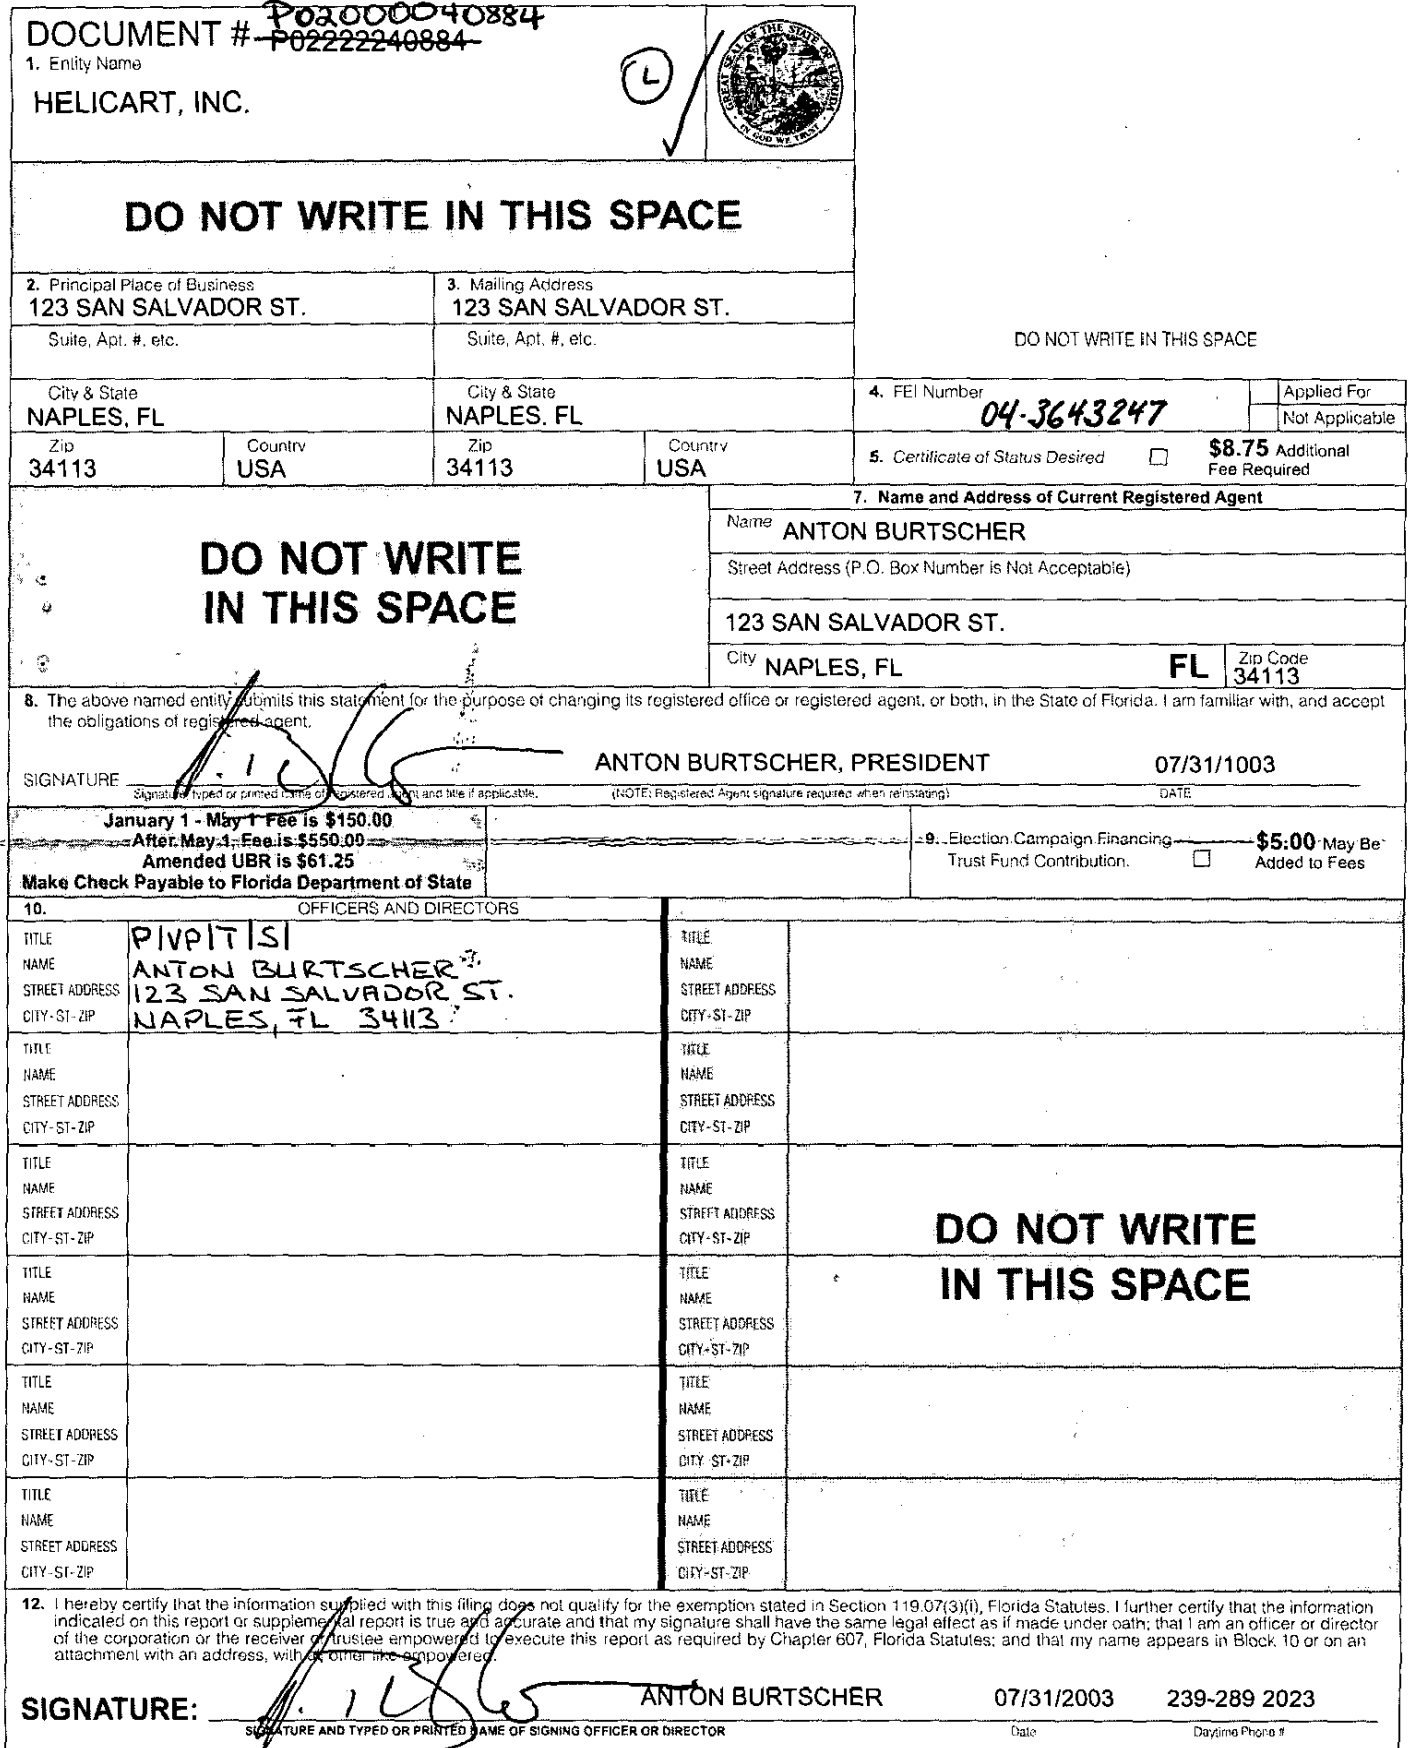 P02000040884
DOCUMENT # P02222240884
1. Entity Name
HELICART, INC.
L
GREAT SEAL OF THE STATE OF FLORIDA
IN GOD WE TRUST
DO NOT WRITE IN THIS SPACE
2. Principal Place of Business
123 SAN SALVADOR ST.
3. Mailing Address
123 SAN SALVADOR ST.
Suite, Apt. #, etc.
Suite, Apt. #, etc.
DO NOT WRITE IN THIS SPACE
City & State
NAPLES, FL
City & State
NAPLES, FL
4. FEI Number
04-3643247
Applied For
Not Applicable
Zip
34113
Country
USA
Zip
34113
Country
USA
5. Certificate of Status Desired
$8.75 Additional
Fee Required
DO NOT WRITE
IN THIS SPACE
7. Name and Address of Current Registered Agent
Name ANTON BURTSCHER
Street Address (P.O. Box Number is Not Acceptable)
123 SAN SALVADOR ST.
City NAPLES, FL FL Zip Code
34113
8. The above named entity submits this statement for the purpose of changing its registered office or registered agent, or both, in the State of Florida. I am familiar with, and accept
the obligations of registered agent.
SIGNATURE ANTON BURTSCHER, PRESIDENT 07/31/1003
Signature, typed or printed name of registered agent and title if applicable. (NOTE: Registered Agent signature required when reinstating) DATE
January 1 - May 1 Fee is $150.00
After May 1, Fee is $550.00
Amended UBR is $61.25
Make Check Payable to Florida Department of State
9. Election Campaign Financing
Trust Fund Contribution.
$5.00 May Be
Added to Fees
10. OFFICERS AND DIRECTORS
TITLE P|VP|T|S|
NAME ANTON BURTSCHER
STREET ADDRESS 123 SAN SALVADOR ST.
CITY-ST-ZIP NAPLES, FL 34113
TITLE
NAME
STREET ADDRESS
CITY-ST-ZIP
TITLE
NAME
STREET ADDRESS
CITY-ST-ZIP
TITLE
NAME
STREET ADDRESS
CITY-ST-ZIP
TITLE
NAME
STREET ADDRESS
CITY-ST-ZIP
TITLE
NAME
STREET ADDRESS
CITY-ST-ZIP
TITLE
NAME
STREET ADDRESS
CITY-ST-ZIP
TITLE
NAME
STREET ADDRESS
CITY-ST-ZIP
TITLE
NAME
STREET ADDRESS
CITY-ST-ZIP
TITLE
NAME
STREET ADDRESS
CITY-ST-ZIP
TITLE
NAME
STREET ADDRESS
CITY-ST-ZIP
TITLE
NAME
STREET ADDRESS
CITY-ST-ZIP
DO NOT WRITE
IN THIS SPACE
12. I hereby certify that the information supplied with this filing does not qualify for the exemption stated in Section 119.07(3)(i), Florida Statutes. I further certify that the information
indicated on this report or supplemental report is true and accurate and that my signature shall have the same legal effect as if made under oath; that I am an officer or director
of the corporation or the receiver or trustee empowered to execute this report as required by Chapter 607, Florida Statutes; and that my name appears in Block 10 or on an
attachment with an address, with other like empowered.
SIGNATURE: ANTON BURTSCHER 07/31/2003 239-289 2023
SIGNATURE AND TYPED OR PRINTED NAME OF SIGNING OFFICER OR DIRECTOR Date Daytime Phone #